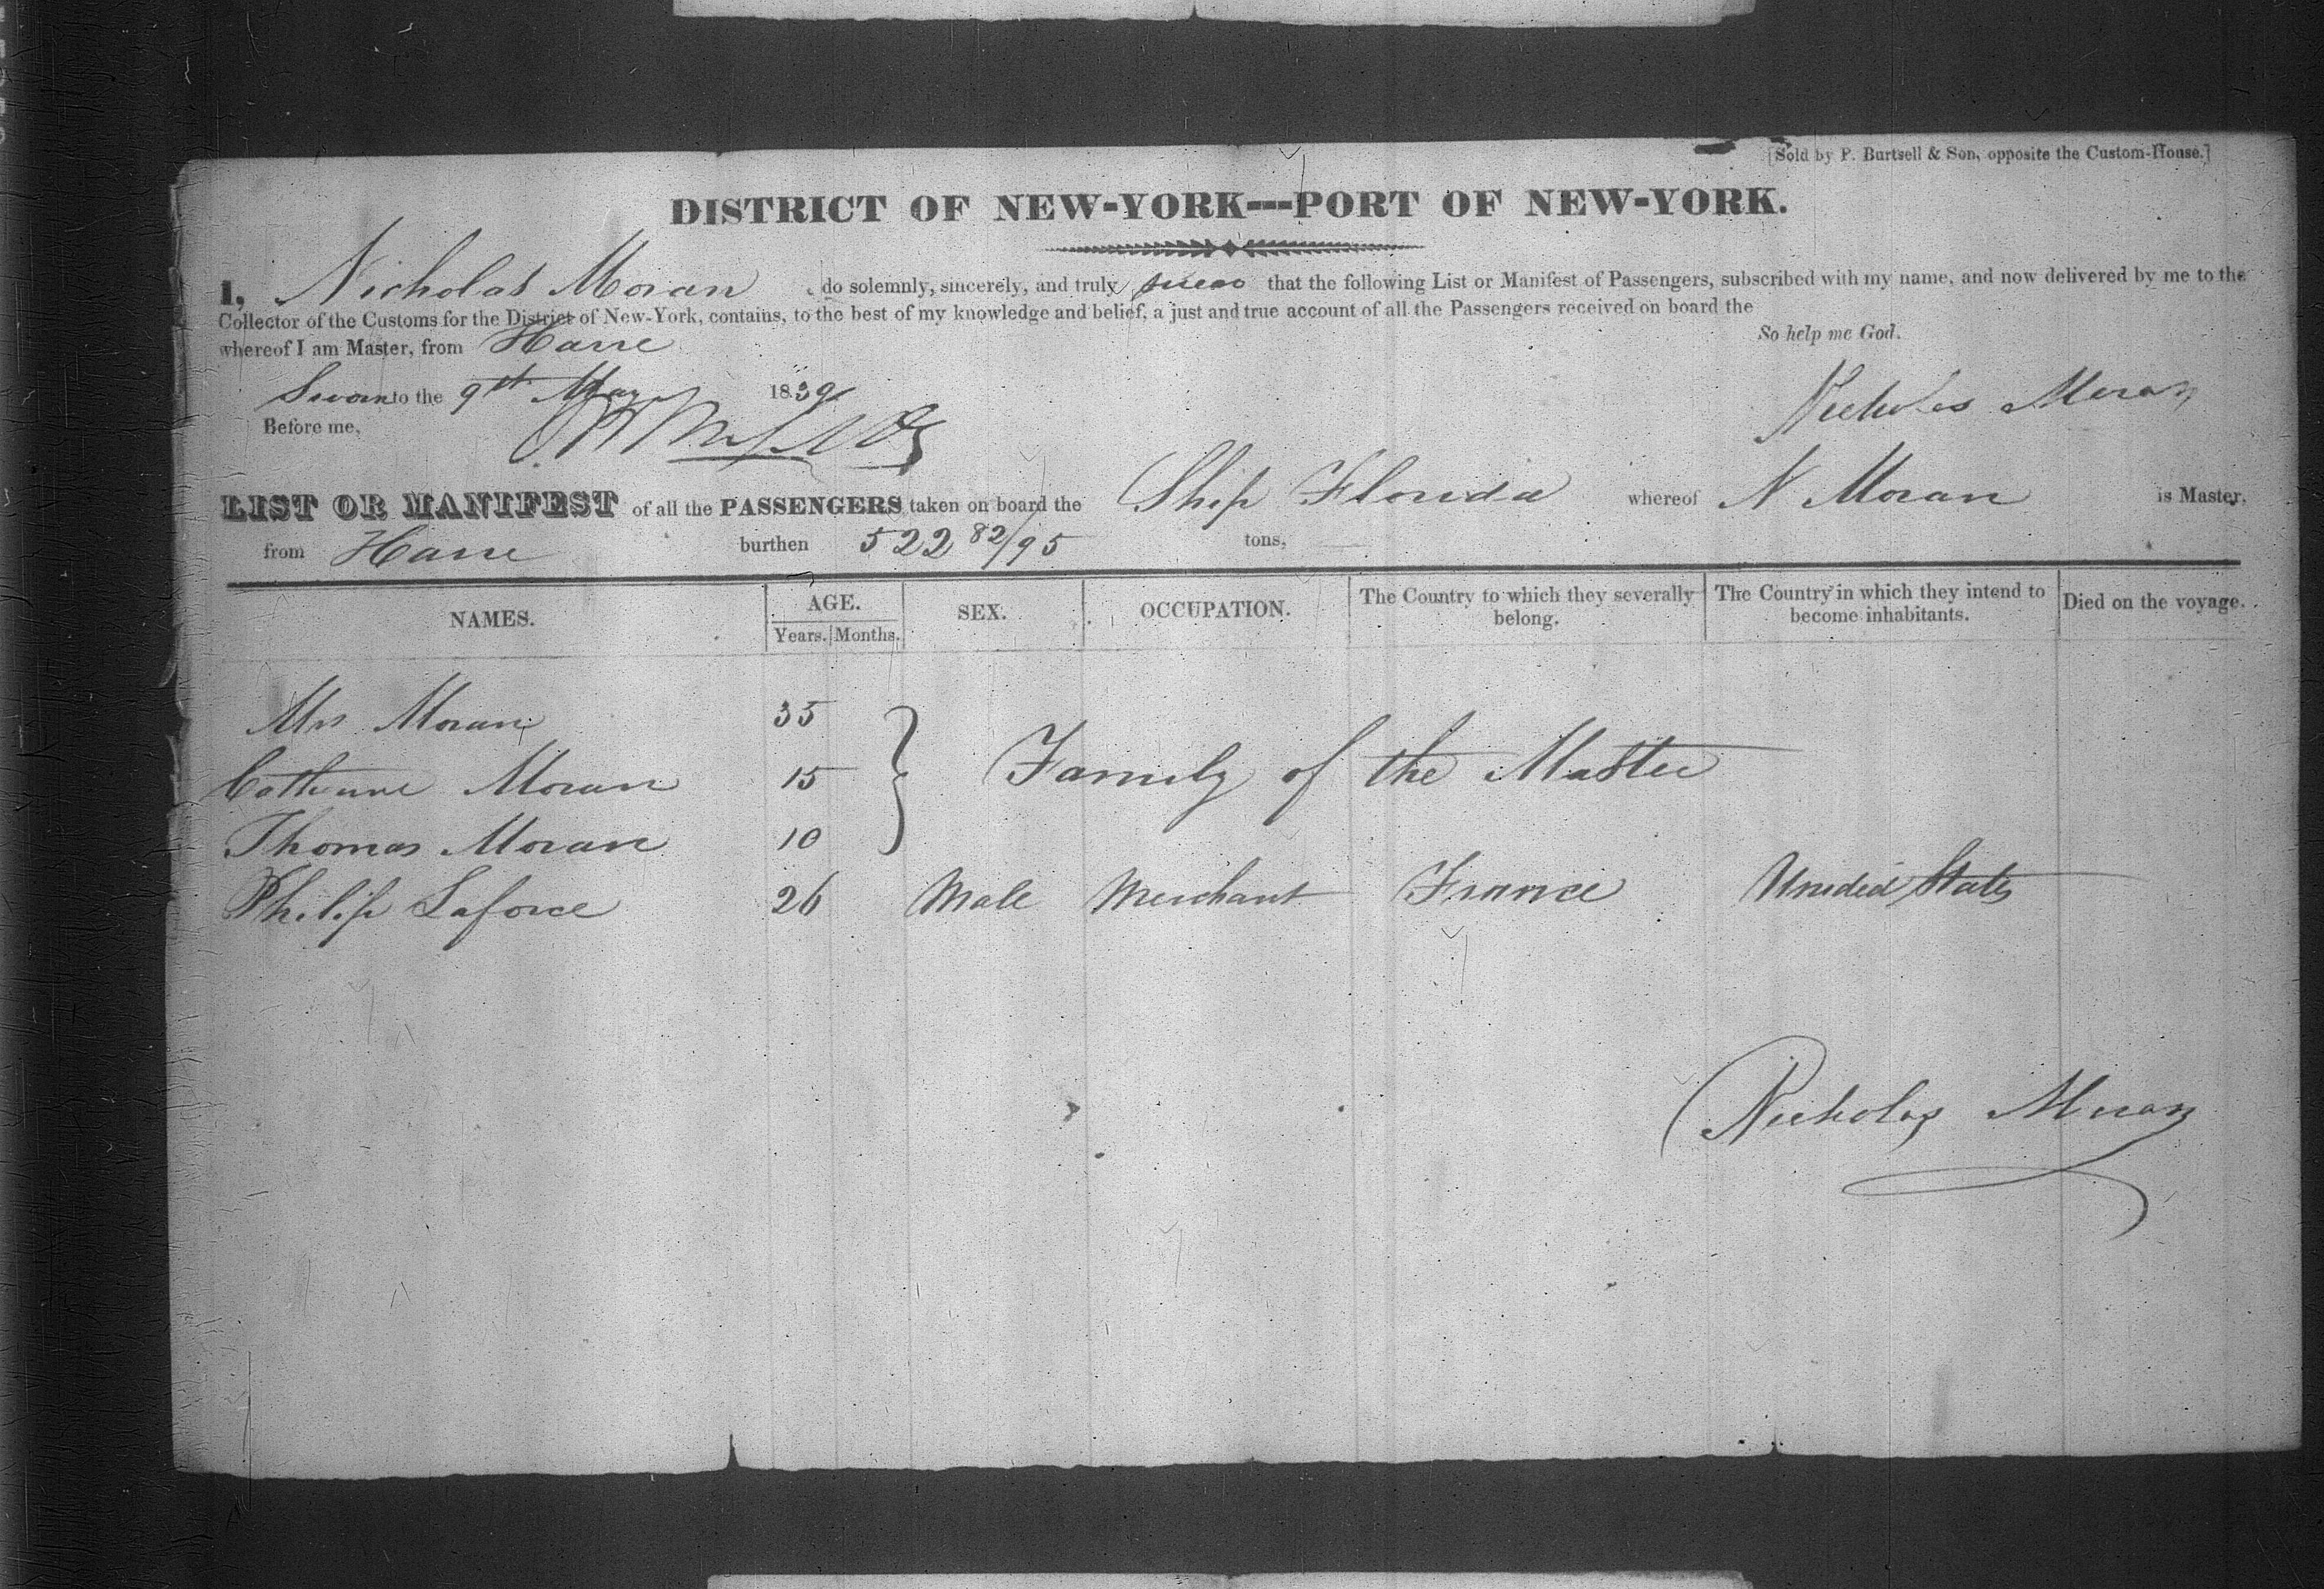 [Sold by P. Burtsell & Son, opposite the Custom-House.]
DISTRICT OF NEW-YORK---PORT OF NEW-YORK.
I, Nicholas Moran do solemnly, sincerely, and truly swear that the following List or Manifest of Passengers, subscribed with my name, and now delivered by me to the
Collector of the Customs for the District of New-York, contains, to the best of my knowledge and belief, a just and true account of all the Passengers received on board the
whereof I am Master, from Havre
So help me God.
Sworn to the 9th May 1839
Nicholas Moran
Before me,
LIST OR MANIFEST of all the PASSENGERS taken on board the Ship Florida whereof N Moran is Master,
from Havre burthen 522 82/95 tons.
NAMES. AGE. Years. Months. SEX. OCCUPATION. The Country to which they severally belong. The Country in which they intend to become inhabitants. Died on the voyage.
Mrs Moran 35
Catherine Moran 15 Family of the Master
Thomas Moran 10
Philip Laforce 26 Male Merchant France United States
Nicholas Moran